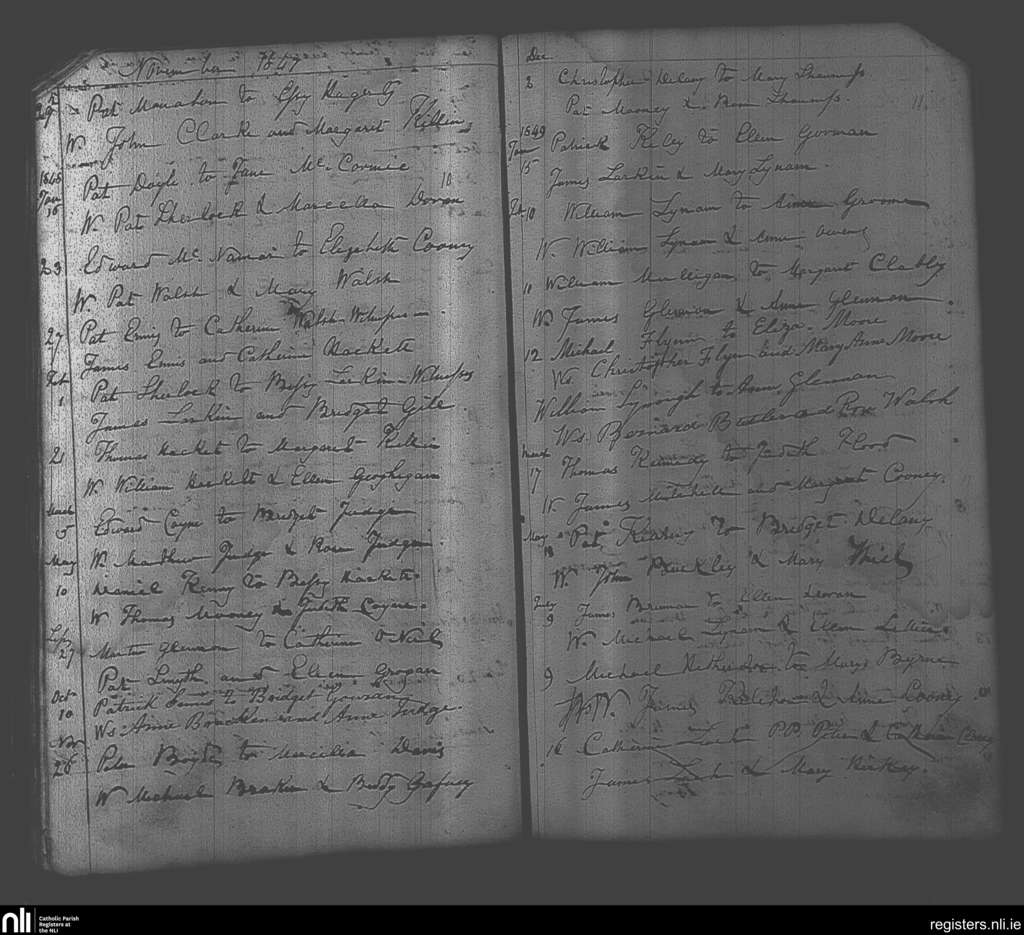 November 1847
Pat Monahan to Essy Hagerty
W. John Clarke and Margaret Killen
1848
Jan 16 Pat Doyle to Jane Mc Cormic
W. Pat Sherlock & Marcella Doran
10
23 Edward Mc Namar to Elizabeth Cooney
W. Pat Walsh & Mary Walsh
27 Pat Ennis to Catherine Walsh Witnesses
James Ennis and Catherine Hackett
Feb 1 Pat Sherlock to Bessy Larkin Witnesses
James Larkin and Bridget Gill
21 Thomas Hacket to Margaret
W. William Hackett & Ellen Geoghegan
March 5 Edward Coyne to Bridget Judge
W. Matthew Judge & Rose Judge
May 10 Daniel Kenny to Bessy Hackett
W Thomas Mooney & Judith Coyne
27 Martin Glennon to Catherine O Neil
Pat Smyth and Ellen Grogan
Oct 10 Patrick to Bridget
Ws. Anne Bracken and Anne Judge
Nov 26 Peter to Marcella Davis
W Michael Braken & Biddy Gafney
Dec
2 Christopher Delany to Mary
Pat Mooney &
11
1849
Jan 15 Patrick to Ellen Gorman
James Larkin & Mary Lynam
10 William Lynam to Anne Groome
W. William Lynam & Anne Owens
11 William Mulligan to Margaret Clabby
W. James Glennon & Anne Glennon
12 Michael Flynn to Eliza Moore
Ws. Christopher Flynn and Mary Anne Moore
William to Anne Glennan
Ws. Bernard Butler and Walsh
17 Thomas Kennedy to Judith Flood
W. James Mitchell and Margaret Cooney
May 18 Pat Kearny to Bridget Delany
W John Buckley & Mary
July 9 James Brennan to Ellen Doran
W. Michael Lynam & Ellen
9 Michael to Mary Byrne
W. James & Anne Cooney
16 Catherine P.P. Peter & Catherine
James & Mary
nli
Catholic Parish
Registers at
the NLI
registers.nli.ie